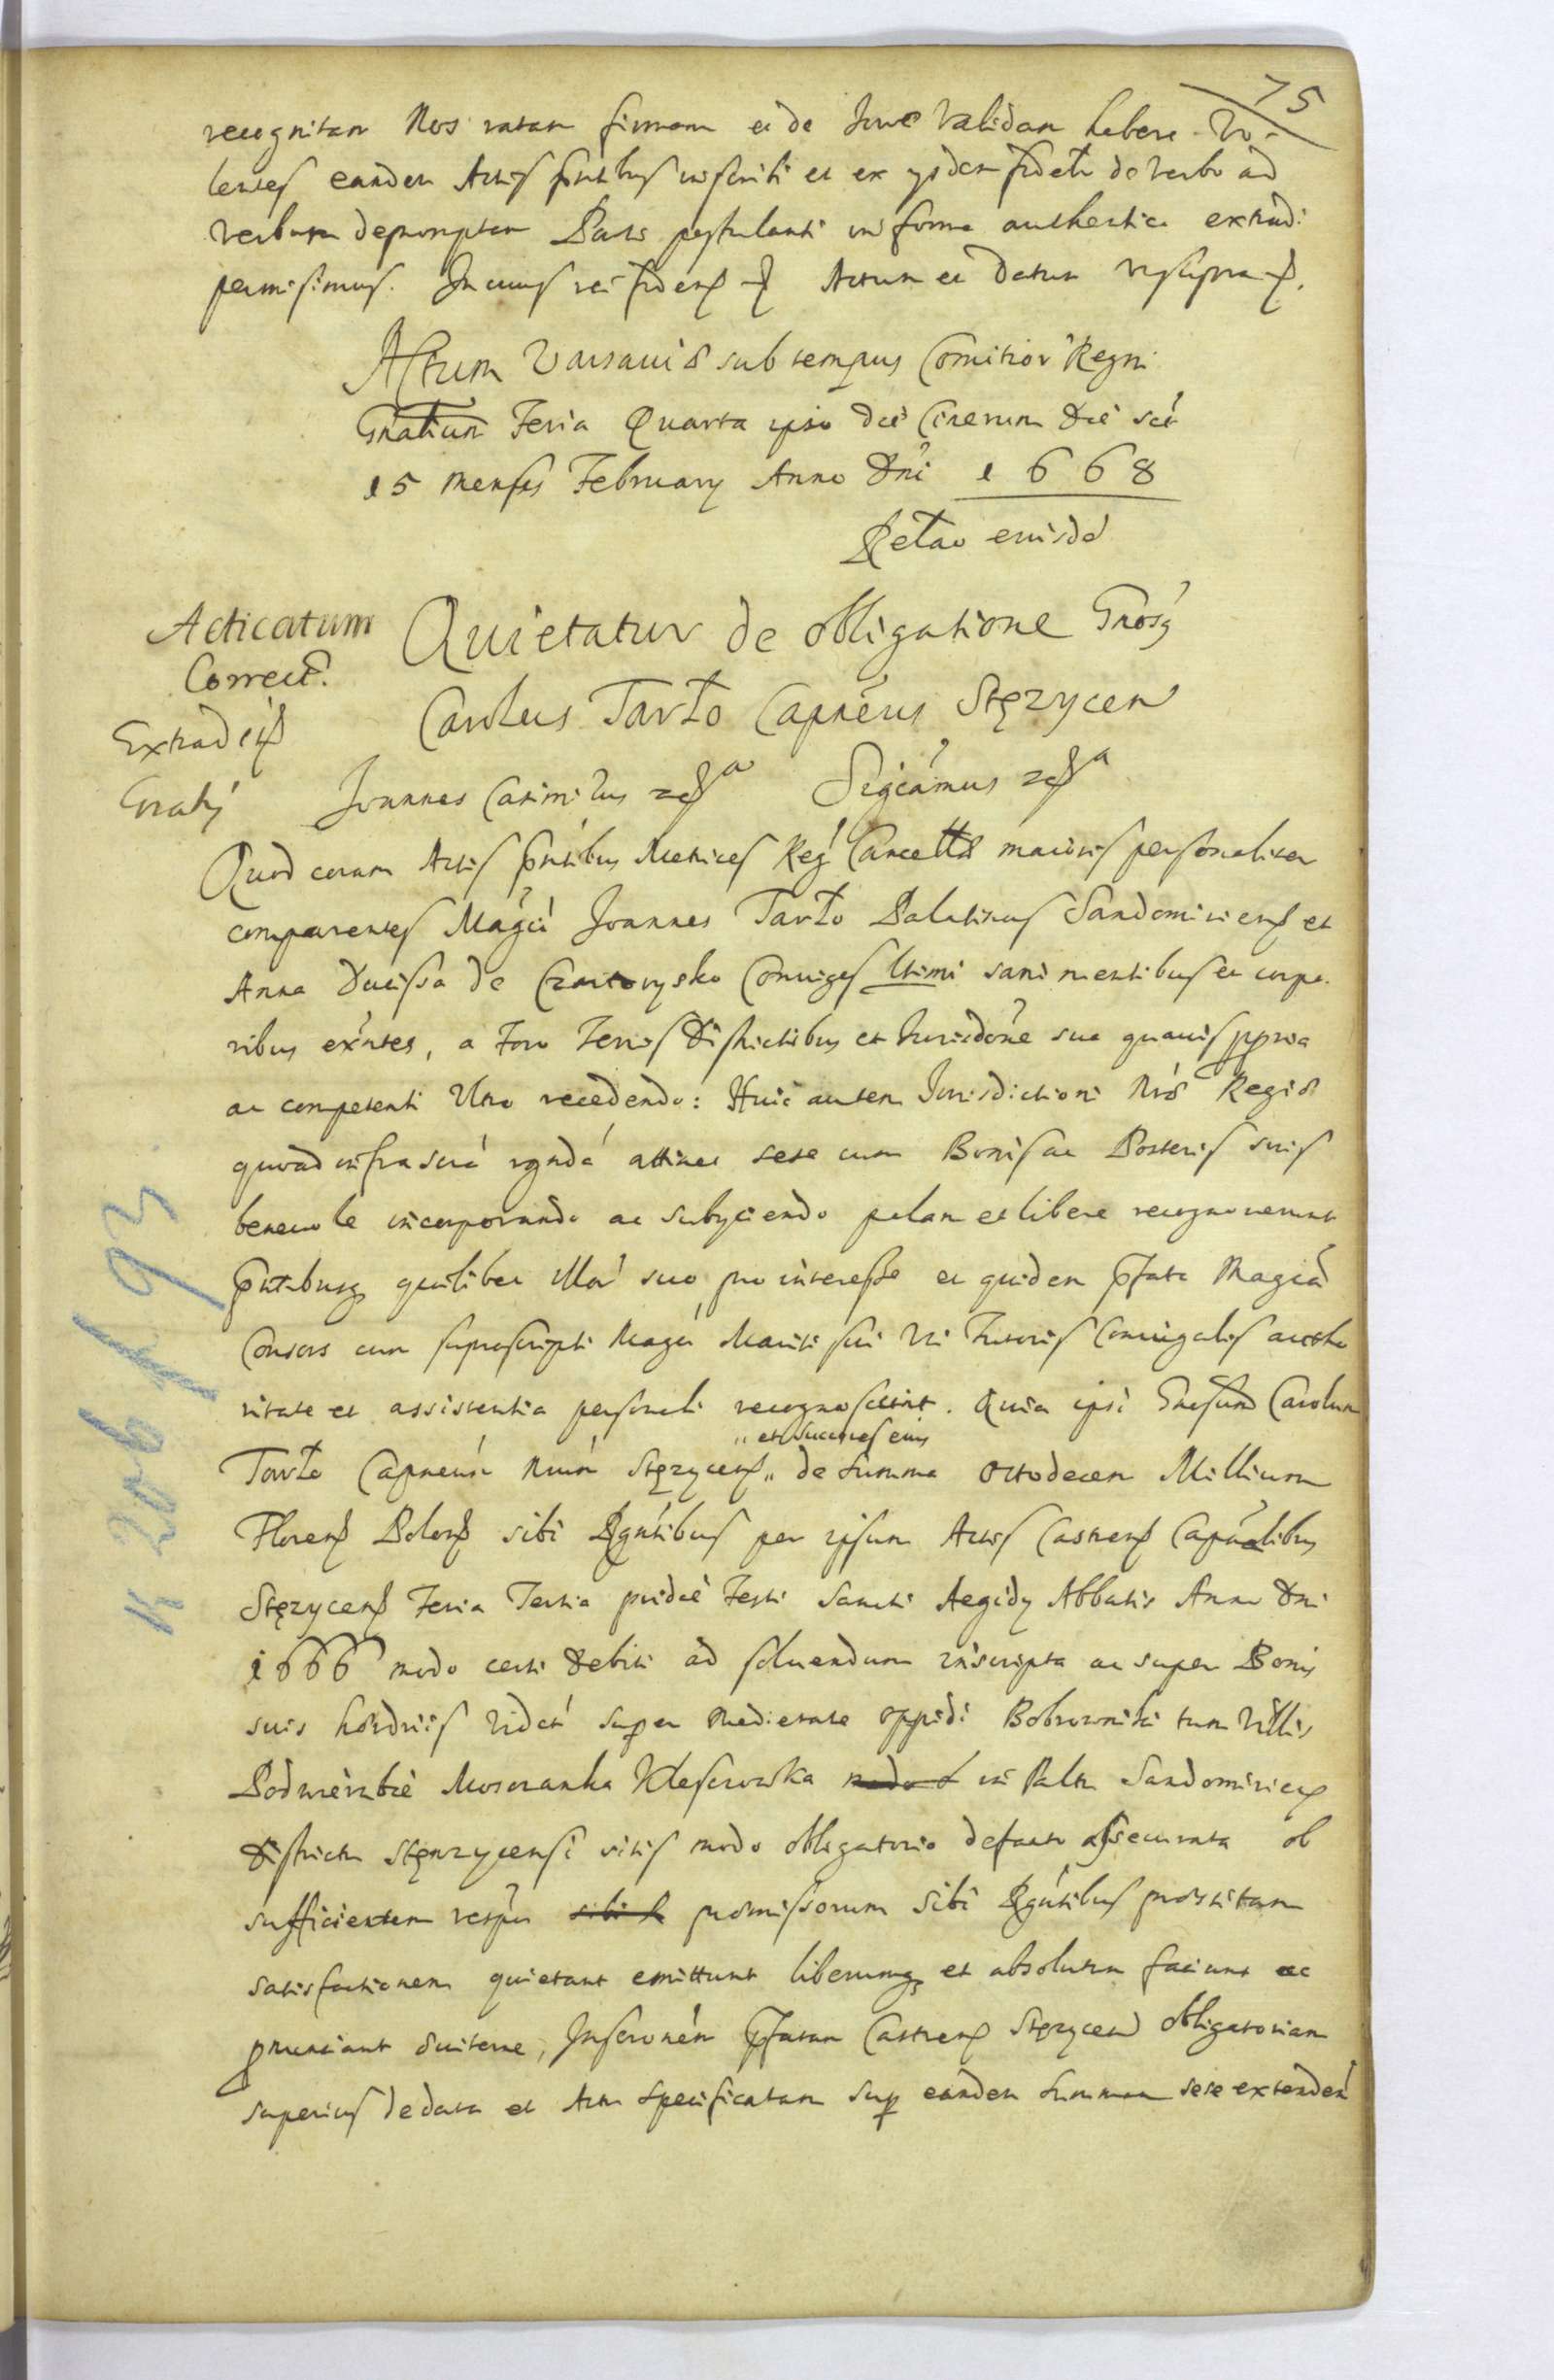 75
recognitam Nos ratam firmam et de Jure validam habere vo-
lentes eandem Actis pn̄tibus inscribi et ex ysdem fidełr de verbo ad
verbum depromptam Parti postulanti in forma authentica extradi
permisimus. In cuius rei fidem Actum et Datum ut supra
Actum Varsaviæ sub tempus Comitior Regni
Gn̄alium Feria Quarta ipso die Cinerum die scil
15 Mensis February Anno Dn̄i 1668
Rel̄ao eiusdē
Acticatum
Correct.
Extradit
Gratis
Quietatur de obligatione Gnosq
Carolus Tarło Capneus Stęzycen
Joannes Casimirus Sigcamus
Quod coram Actis pn̄tibus Metrices Reg Cancellæ maioris personaliter
comparentes Maḡci Joannes Tarło Palatinus Sandomiriens et
Anna Ducissa de Czartorysko Coniuges Ltimi sani mentibus et corpo
ribus exntes, a Foro Terris Districtibus et Jurisdone sua quavis ppria
ac competenti Utro recedendo: Huic autem Jurisdictioni Nræ Regiæ
quoad infrascra attinet sese cum Bonis ac Posteris suis
benevole incorporando ac subyciendo palam et libere recognoverunt
pn̄tibusq quilibet illor suo pro interesse et quidem pfata Magca
Consors cum suprascripti Magci Mariti sui uti Tutoris Coniugalis autho
ritate et assistentia personali recognoscunt. Quia ipsi Gnosum Carolum
„ et Succres eius
Tarło Capneum Nrum Stęzycens „ de summa Octodecem Millium
Floren Polon sibi Rgn̄tibus per ipsum Actis Castren Capnealibus
Stęzycens Feria Tertia pridie Festi Sancti Aegidy Abbatis Anno Dni
1666 modo certi Debiti ad solvendum inscripta ac super Bonis
suis hærdriis videt super Medietate oppidi Bobrowniki tum Villis
Podwierzbie Moscranka Kleszowka in Paltu Sandomirien
Districtu Stęnzycensi sitis modo obligatorio defacto assecurata ob
sufficientem respu promissorum sibi Rgn̄tibus præstitam
satisfactionem quietant emittunt liberumq et absolutum faciunt ac
pnunciant duiterne, Inscronem pfatam Castren Stęzycen obligatoriam
superius de data et Actu specificatam sup eandem summam sese extenden
K 206 f 93